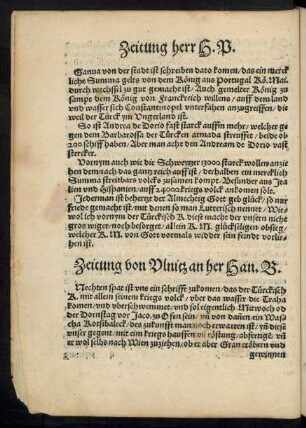 Zeitung herr H. P.
Ganua von der stadt ist schreiben dato komen / das ein merck
liche Summa gelts von dem König aus Portugal Kö. Mai.
durch wechssel zu gut gemacht ist / Auch gemelter König zu
sampt dem König von Franckreich willens / auff dem land
und wasser sich Constantinopel unterstahen anzugreiffen / die
weil der Türck ym Ungerland ist.
So ist Andrea de Doria fast starck auffm mehr / welcher ge
gen dem Barbarossa der Türcken armada streyffet / beide ob
200 schiff haben / Aber man acht den Andream de Doria vast
stercker.
Vornym auch wie die Schweytzer 13000 starck wollen anzie
hen dem nach das gantz reich auff ist / derhalben ein mercklich
Summa streitbars volcks zusamen kompt / Besunder aus Jta
lien und Hispanien / auff 24000 kriegs volck ankomen söle.
Jederman ist behertzt der Almechtig Gott geb glück / so nur
friede gemacht ist / mit denen so man Luterisch nennet / Wie
wol ich vornym der Türckisch K. diese macht der unsern nicht
gros wiget / noch besorget / allein K. M. glückseligen obsieg /
welcher K. M. von Gott vormals widder sein feindt vorlie-
hen ist.
Zeitung von Vlnitz an her Han. V.
Nechten spat ist uns ein schrifft zukomen / das der Türckisch
K. mit allem seinem kriegs volck / uber das wasser die Traha
komen / und uberschwemmet / und sol eigentlich Mitwoch od
der Dornstag vor Jaco. zu Ofen sein / und von danen ein Was
cha Korsibaleck / des zukunfft man noch erwarten ist / und diese
unser gegent / mit ein kriegs hauffen und röstung / abfertige / und
er wöl selbs nach Wien zuziehen / ob er aber Gran erobern und
gewinnen